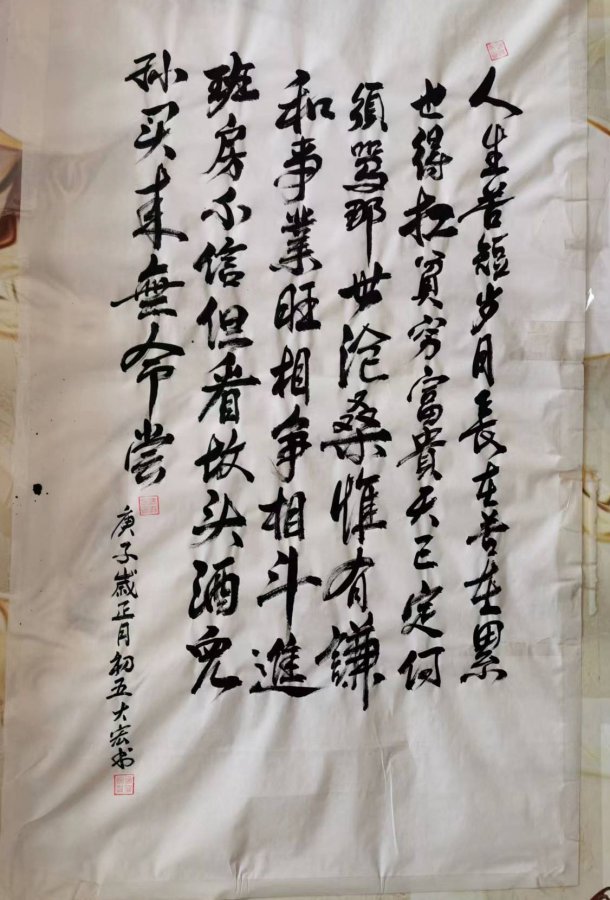 人生苦短岁月長在苦在累
也得扛貧穷富貴天已定何
須罵那世沧桑惟有謙
和事業旺相争相斗進
班房不信但看坟头酒兒
孙买来無命尝
庚子歲正月初五大宏书